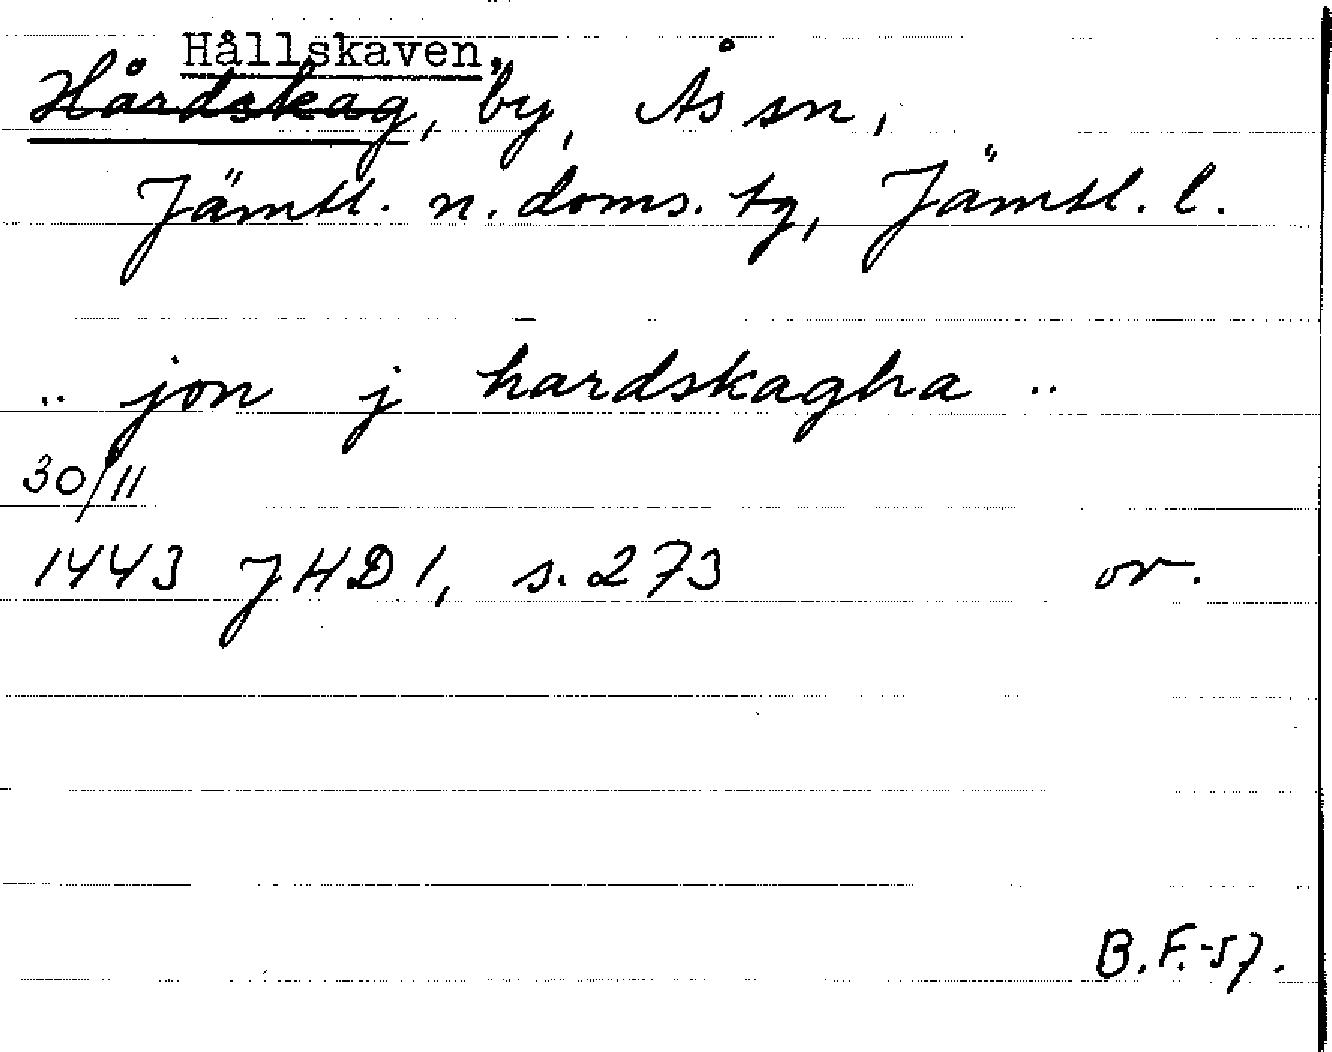 Hållskaven,
Hårdskag, by, Ås sn,
Jämtl. n. doms. tg, Jämtl. l.
.. jon j hardskagha ..
30/11
1443 JHD 1, s. 273 or.
B.F.-57.